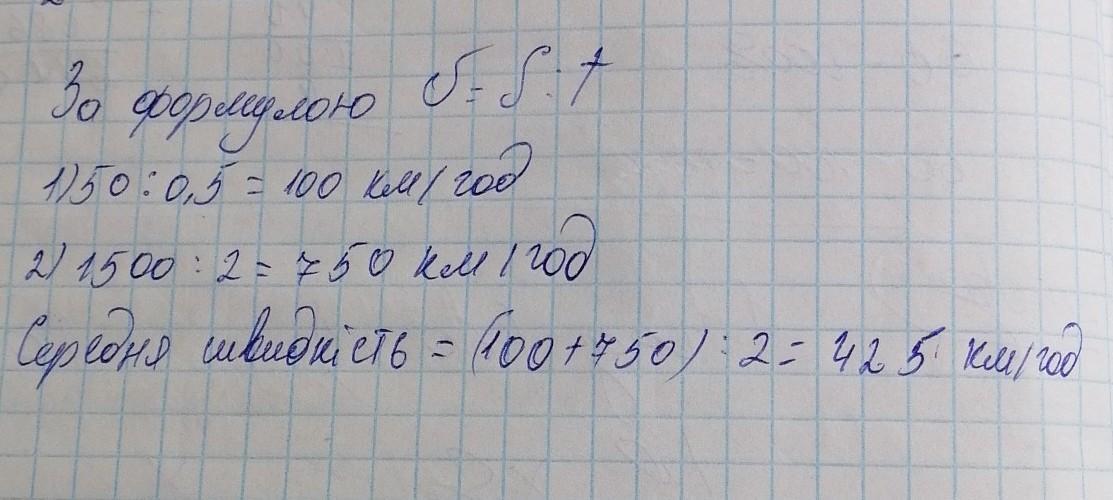 За формулою V = S : t
1) 50 : 0,5 = 100 км/год
2) 1500 : 2 = 750 км/год
Середня швидкість = (100 + 750) : 2 = 425 км/год